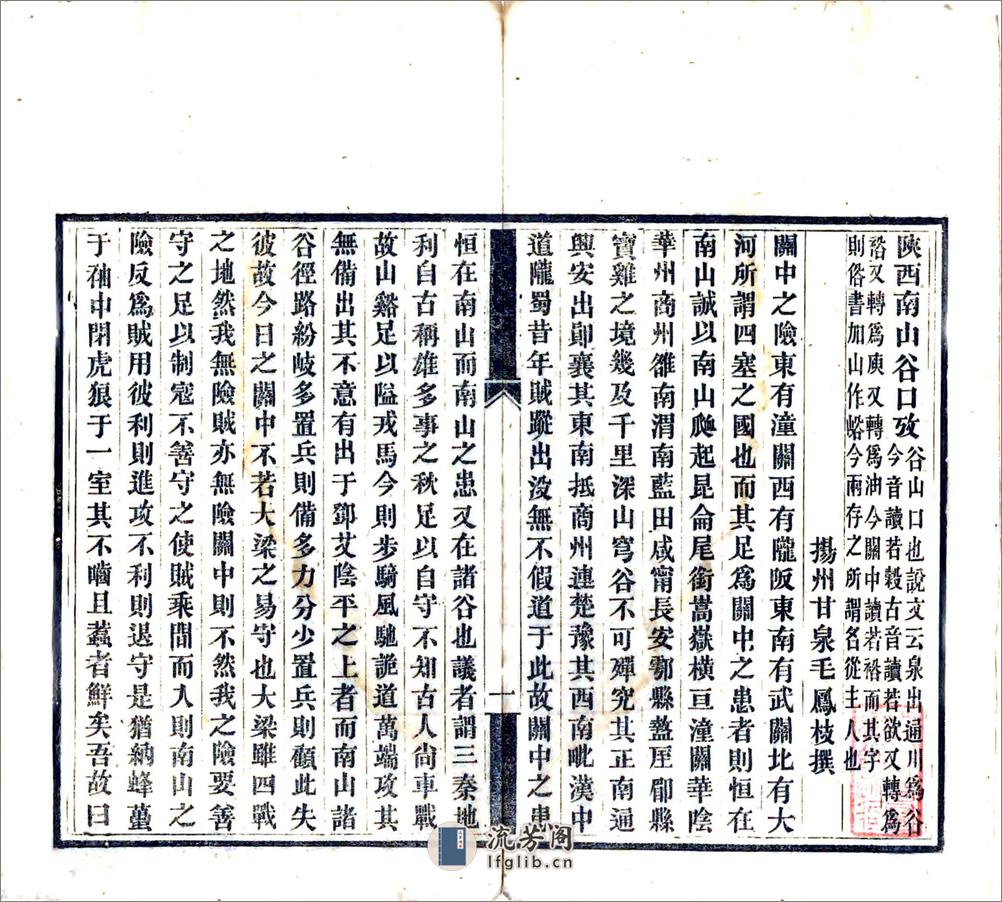 陝西南山谷口攷
谷山口也說文云泉出通川爲谷
今音讀若穀古音讀若欲又轉爲
峪又轉爲庾又轉爲油今關中讀若裕而其字
則俗書加山作峪今兩存之所謂名從主人也
揚州甘泉毛鳳枝撰
關中之險東有潼關西有隴阪東南有武關北有大
河所謂四塞之國也而其足爲關中之患者則恒在
南山誠以南山𡾰起昆侖尾銜嵩嶽橫亘潼關華陰
華州商州雒南渭南藍田咸甯長安鄠縣盩厔郿縣
寶雞之境幾及千里深山穹谷不可殫究其正南通
興安出鄖襄其東南抵商州連楚豫其西南毗漢中
道隴蜀昔年賊蹤出沒無不假道于此故關中之患
一
恒在南山而南山之患又在諸谷也議者謂三秦地
利自古稱雄多事之秋足以自守不知古人尙車戰
故山谿足以隘戎馬今則步騎風馳詭道萬端攻其
無備出其不意有出于鄧艾陰平之上者而南山諸
谷徑路紛岐多置兵則備多力分少置兵則顧此失
彼故今日之關中不若大梁之易守也大梁雖四戰
之地然我無險賊亦無險關中則不然我之險要善
守之足以制寇不善守之使賊乘間而入則南山之
險反爲賊用彼利則進攻不利則退守是猶納蜂蠆
于袖中閉虎狼于一室其不嚙且蠚者鮮矣吾故曰
流芳阁
lfglib.cn